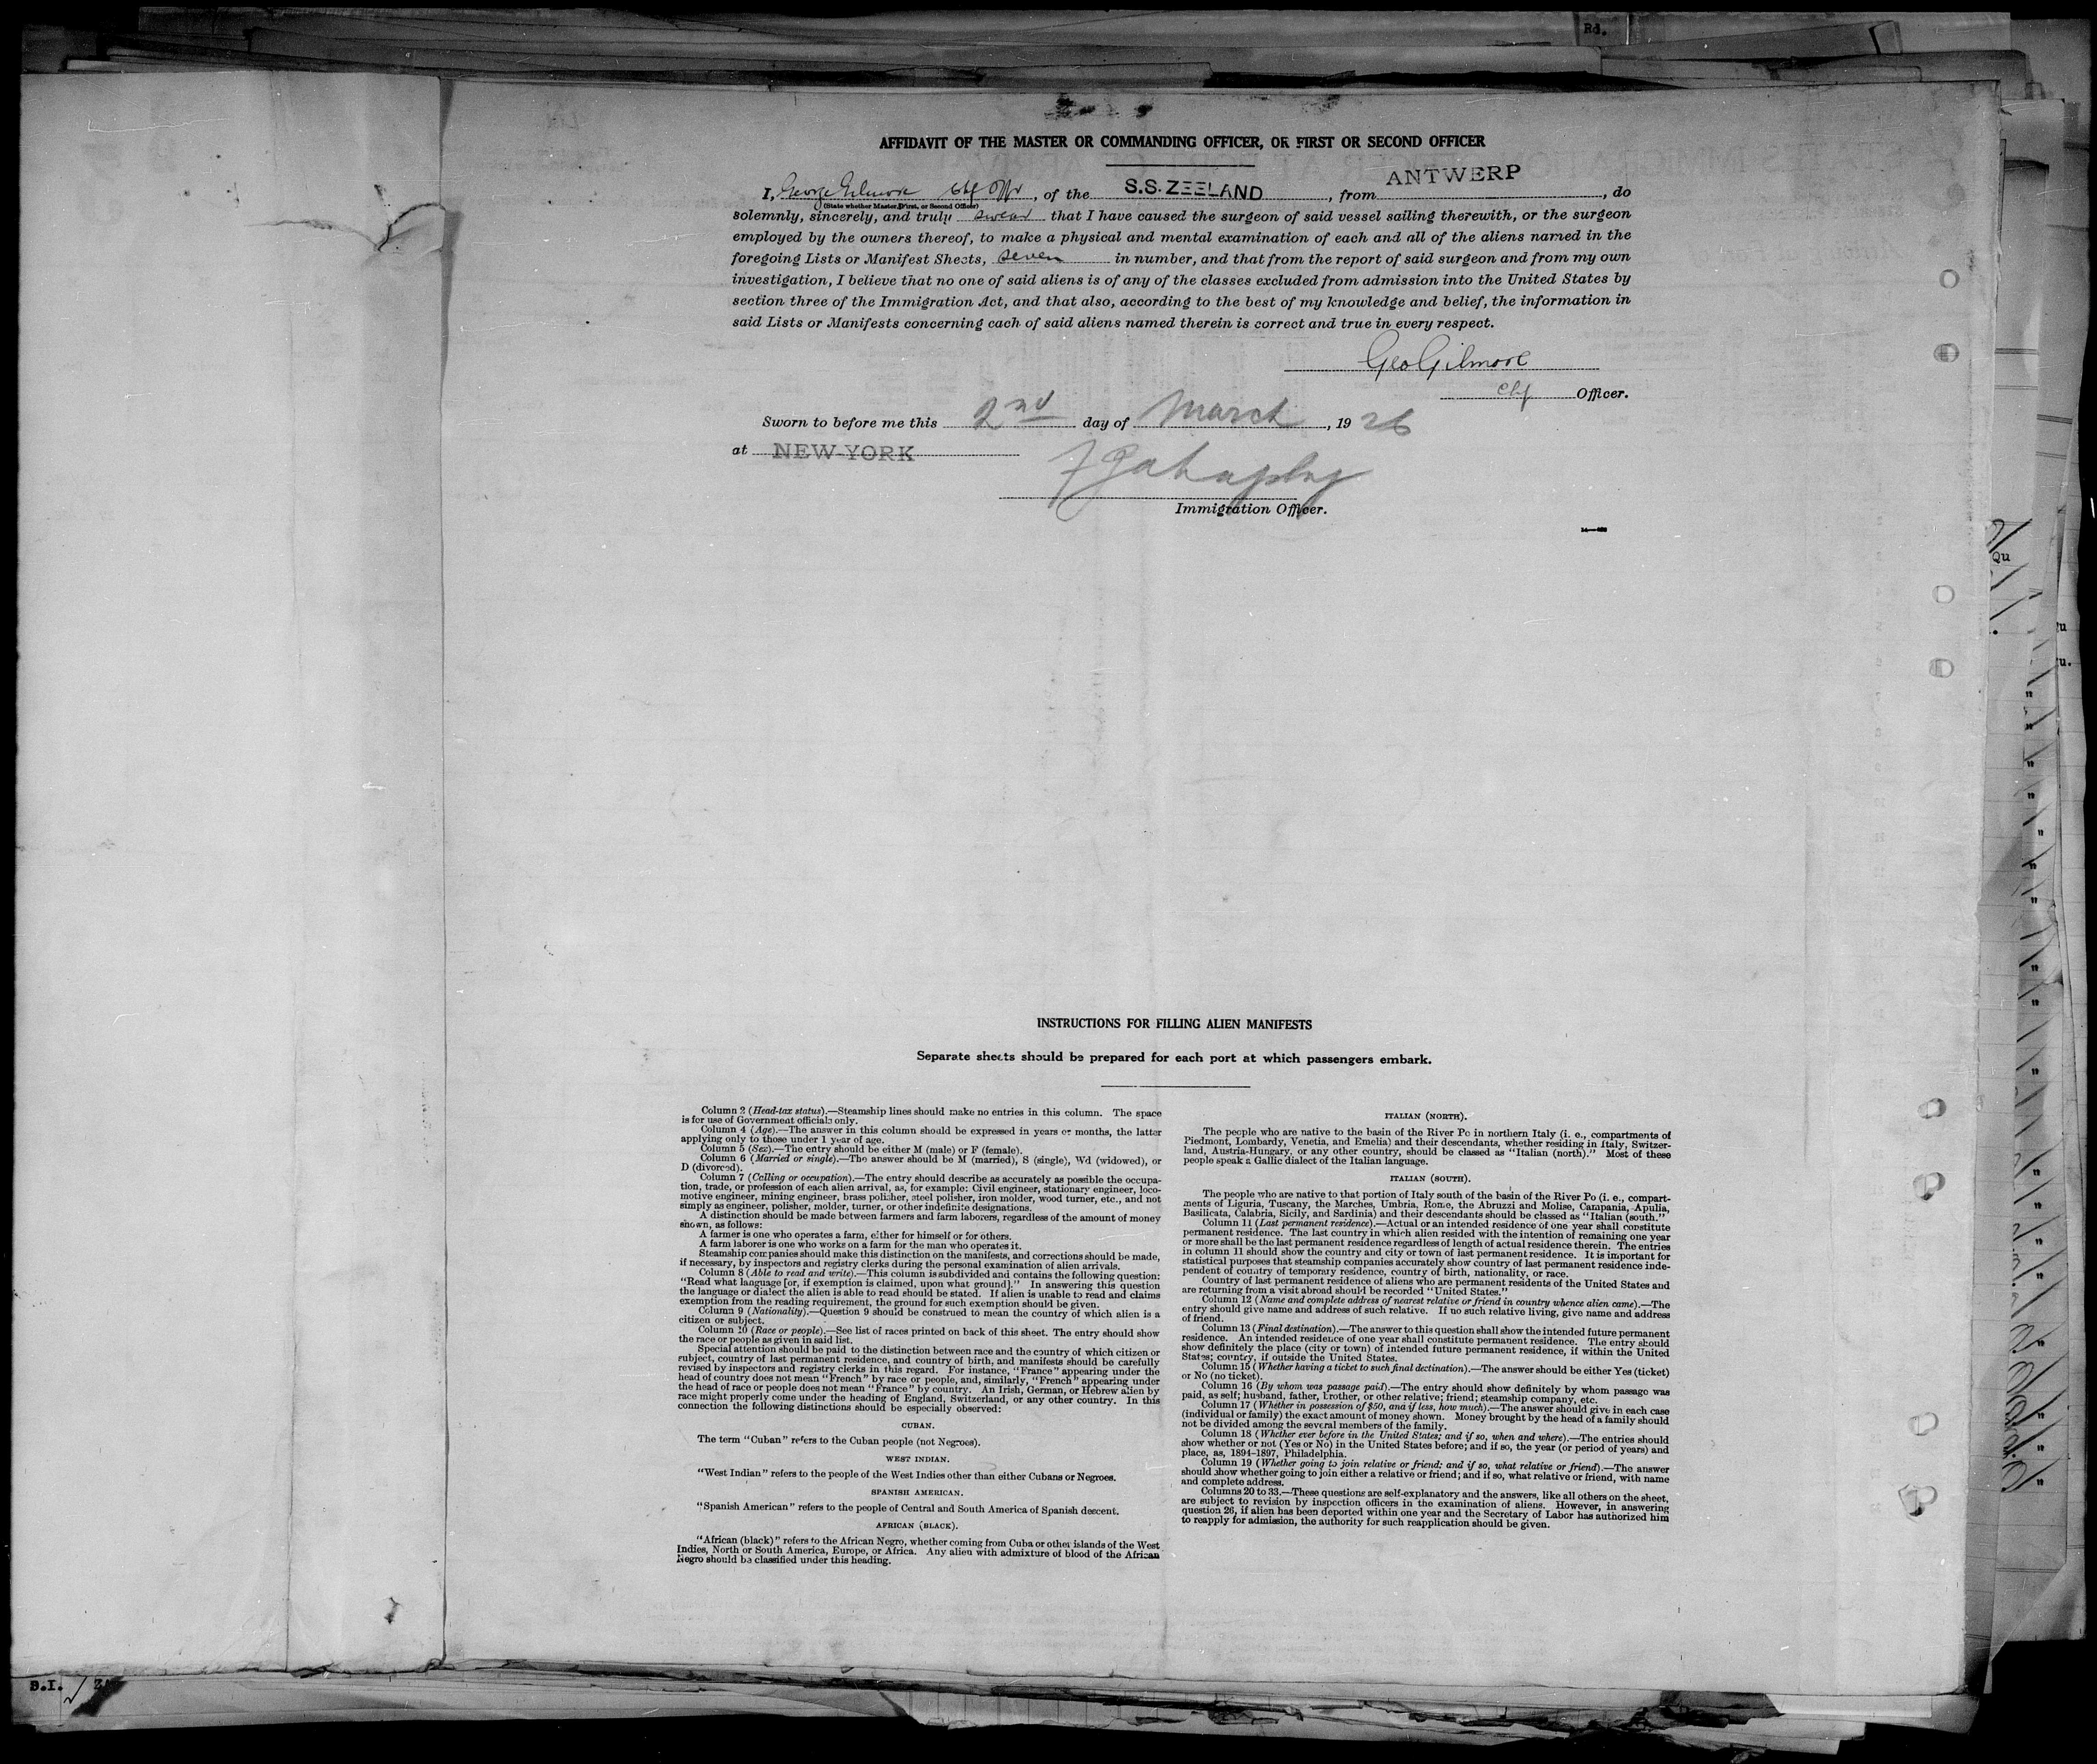 Rd.
AFFIDAVIT OF THE MASTER OR COMMANDING OFFICER, OR FIRST OR SECOND OFFICER
I, George Gilmore Chf Offr, of the S.S. ZEELAND, from ANTWERP, do
(State whether Master, First, or Second Officer)
solemnly, sincerely, and truly swear that I have caused the surgeon of said vessel sailing therewith, or the surgeon
employed by the owners thereof, to make a physical and mental examination of each and all of the aliens named in the
foregoing Lists or Manifest Sheets, seven in number, and that from the report of said surgeon and from my own
investigation, I believe that no one of said aliens is of any of the classes excluded from admission into the United States by
section three of the Immigration Act, and that also, according to the best of my knowledge and belief, the information in
said Lists or Manifests concerning each of said aliens named therein is correct and true in every respect.
Geo Gilmore
Chf Officer.
Sworn to before me this 2nd day of March, 1926
at NEW YORK
Immigration Officer.
INSTRUCTIONS FOR FILLING ALIEN MANIFESTS
Separate sheets should be prepared for each port at which passengers embark.
Column 2 (Head-tax status).—Steamship lines should make no entries in this column. The space
is for use of Government officials only.
Column 4 (Age).—The answer in this column should be expressed in years or months, the latter
applying only to those under 1 year of age.
Column 5 (Sex).—The entry should be either M (male) or F (female).
Column 6 (Married or single).—The answer should be M (married), S (single), Wd (widowed), or
D (divorced).
Column 7 (Calling or occupation).—The entry should describe as accurately as possible the occupa-
tion, trade, or profession of each alien arrival, as, for example: Civil engineer, stationary engineer, loco-
motive engineer, mining engineer, brass polisher, steel polisher, iron molder, wood turner, etc., and not
simply as engineer, polisher, molder, turner, or other indefinite designations.
A distinction should be made between farmers and farm laborers, regardless of the amount of money
shown, as follows:
A farmer is one who operates a farm, either for himself or for others.
A farm laborer is one who works on a farm for the man who operates it.
Steamship companies should make this distinction on the manifests, and corrections should be made,
if necessary, by inspectors and registry clerks during the personal examination of alien arrivals.
Column 8 (Able to read and write).—This column is subdivided and contains the following question:
"Read what language [or, if exemption is claimed, upon what ground]." In answering this question
the language or dialect the alien is able to read should be stated. If alien is unable to read and claims
exemption from the reading requirement, the ground for such exemption should be given.
Column 9 (Nationality).—Question 9 should be construed to mean the country of which alien is a
citizen or subject.
Column 10 (Race or people).—See list of races printed on back of this sheet. The entry should show
the race or people as given in said list.
Special attention should be paid to the distinction between race and the country of which citizen or
subject, country of last permanent residence, and country of birth, and manifests should be carefully
revised by inspectors and registry clerks in this regard. For instance, "France" appearing under the
head of country does not mean "French" by race or people, and, similarly, "French" appearing under
the head of race or people does not mean "France" by country. An Irish, German, or Hebrew alien by
race might properly come under the heading of England, Switzerland, or any other country. In this
connection the following distinctions should be especially observed:
CUBAN.
The term "Cuban" refers to the Cuban people (not Negroes).
WEST INDIAN.
"West Indian" refers to the people of the West Indies other than either Cubans or Negroes.
SPANISH AMERICAN.
"Spanish American" refers to the people of Central and South America of Spanish descent.
AFRICAN (BLACK).
"African (black)" refers to the African Negro, whether coming from Cuba or other islands of the West
Indies, North or South America, Europe, or Africa. Any alien with admixture of blood of the African
Negro should be classified under this heading.
ITALIAN (NORTH).
The people who are native to the basin of the River Po in northern Italy (i. e., compartments of
Piedmont, Lombardy, Venetia, and Emelia) and their descendants, whether residing in Italy, Switzer-
land, Austria-Hungary, or any other country, should be classed as "Italian (north)." Most of these
people speak a Gallic dialect of the Italian language.
ITALIAN (SOUTH).
The people who are native to that portion of Italy south of the basin of the River Po (i. e., compart-
ments of Liguria, Tuscany, the Marches, Umbria, Rome, the Abruzzi and Molise, Campania, Apulia,
Basilicata, Calabria, Sicily, and Sardinia) and their descendants should be classed as "Italian (south."
Column 11 (Last permanent residence).—Actual or an intended residence of one year shall constitute
permanent residence. The last country in which alien resided with the intention of remaining one year
or more shall be the last permanent residence regardless of length of actual residence therein. The entries
in column 11 should show the country and city or town of last permanent residence. It is important for
statistical purposes that steamship companies accurately show country of last permanent residence inde-
pendent of country of temporary residence, country of birth, nationality, or race.
Country of last permanent residence of aliens who are permanent residents of the United States and
are returning from a visit abroad should be recorded "United States."
Column 12 (Name and complete address of nearest relative or friend in country whence alien came).—The
entry should give name and address of such relative. If no such relative living, give name and address
of friend.
Column 13 (Final destination).—The answer to this question shall show the intended future permanent
residence. An intended residence of one year shall constitute permanent residence. The entry should
show definitely the place (city or town) of intended future permanent residence, if within the United
States; country, if outside the United States.
Column 15 (Whether having a ticket to such final destination).—The answer should be either Yes (ticket)
or No (no ticket).
Column 16 (By whom was passage paid).—The entry should show definitely by whom passage was
paid, as self; husband, father, brother, or other relative; friend; steamship company, etc.
Column 17 (Whether in possession of $50, and if less, how much).—The answer should give in each case
(individual or family) the exact amount of money shown. Money brought by the head of a family should
not be divided among the several members of the family.
Column 18 (Whether ever before in the United States; and if so, when and where).—The entries should
show whether or not (Yes or No) in the United States before; and if so, the year (or period of years) and
place, as, 1894-1897, Philadelphia.
Column 19 (Whether going to join relative or friend; and if so, what relative or friend).—The answer
should show whether going to join either a relative or friend; and if so, what relative or friend, with name
and complete address.
Columns 20 to 33.—These questions are self-explanatory and the answers, like all others on the sheet,
are subject to revision by inspection officers in the examination of aliens. However, in answering
question 26, if alien has been deported within one year and the Secretary of Labor has authorized him
to reapply for admission, the authority for such reapplication should be given.
Qu
u
u.
D.I.